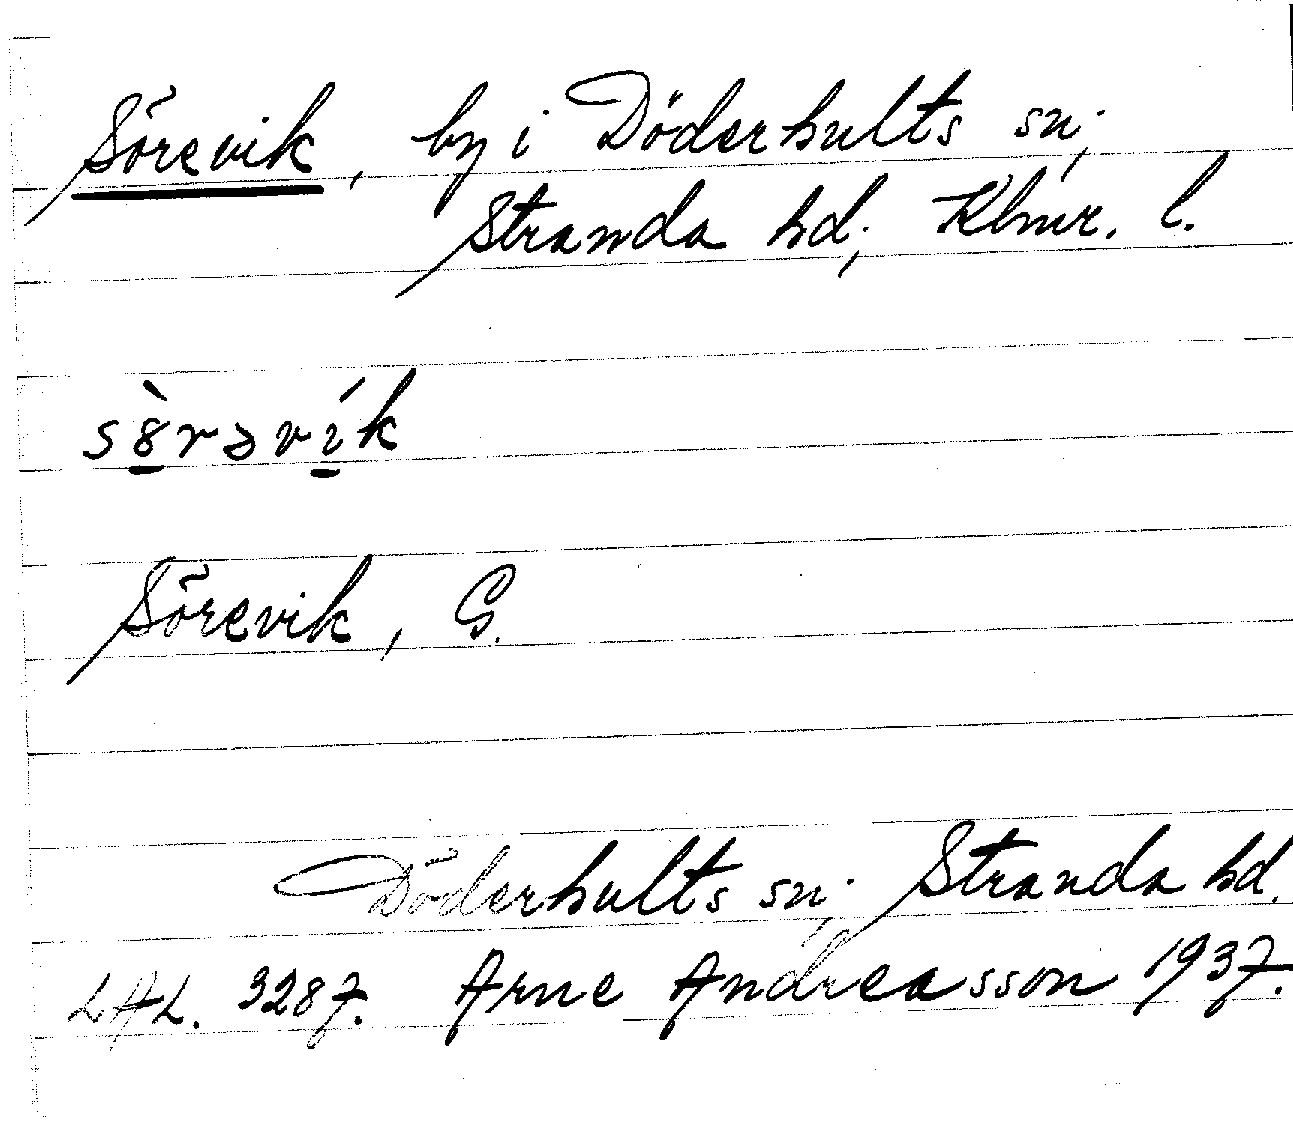 Sörevik, by i Döderhults sn;
Stranda hd; Klmr. l.
sȣ̱̀rəví̱k
Sörevik, G.
Döderhults sn; Stranda hd.
LAL. 3287. Arne Andreasson 1937.